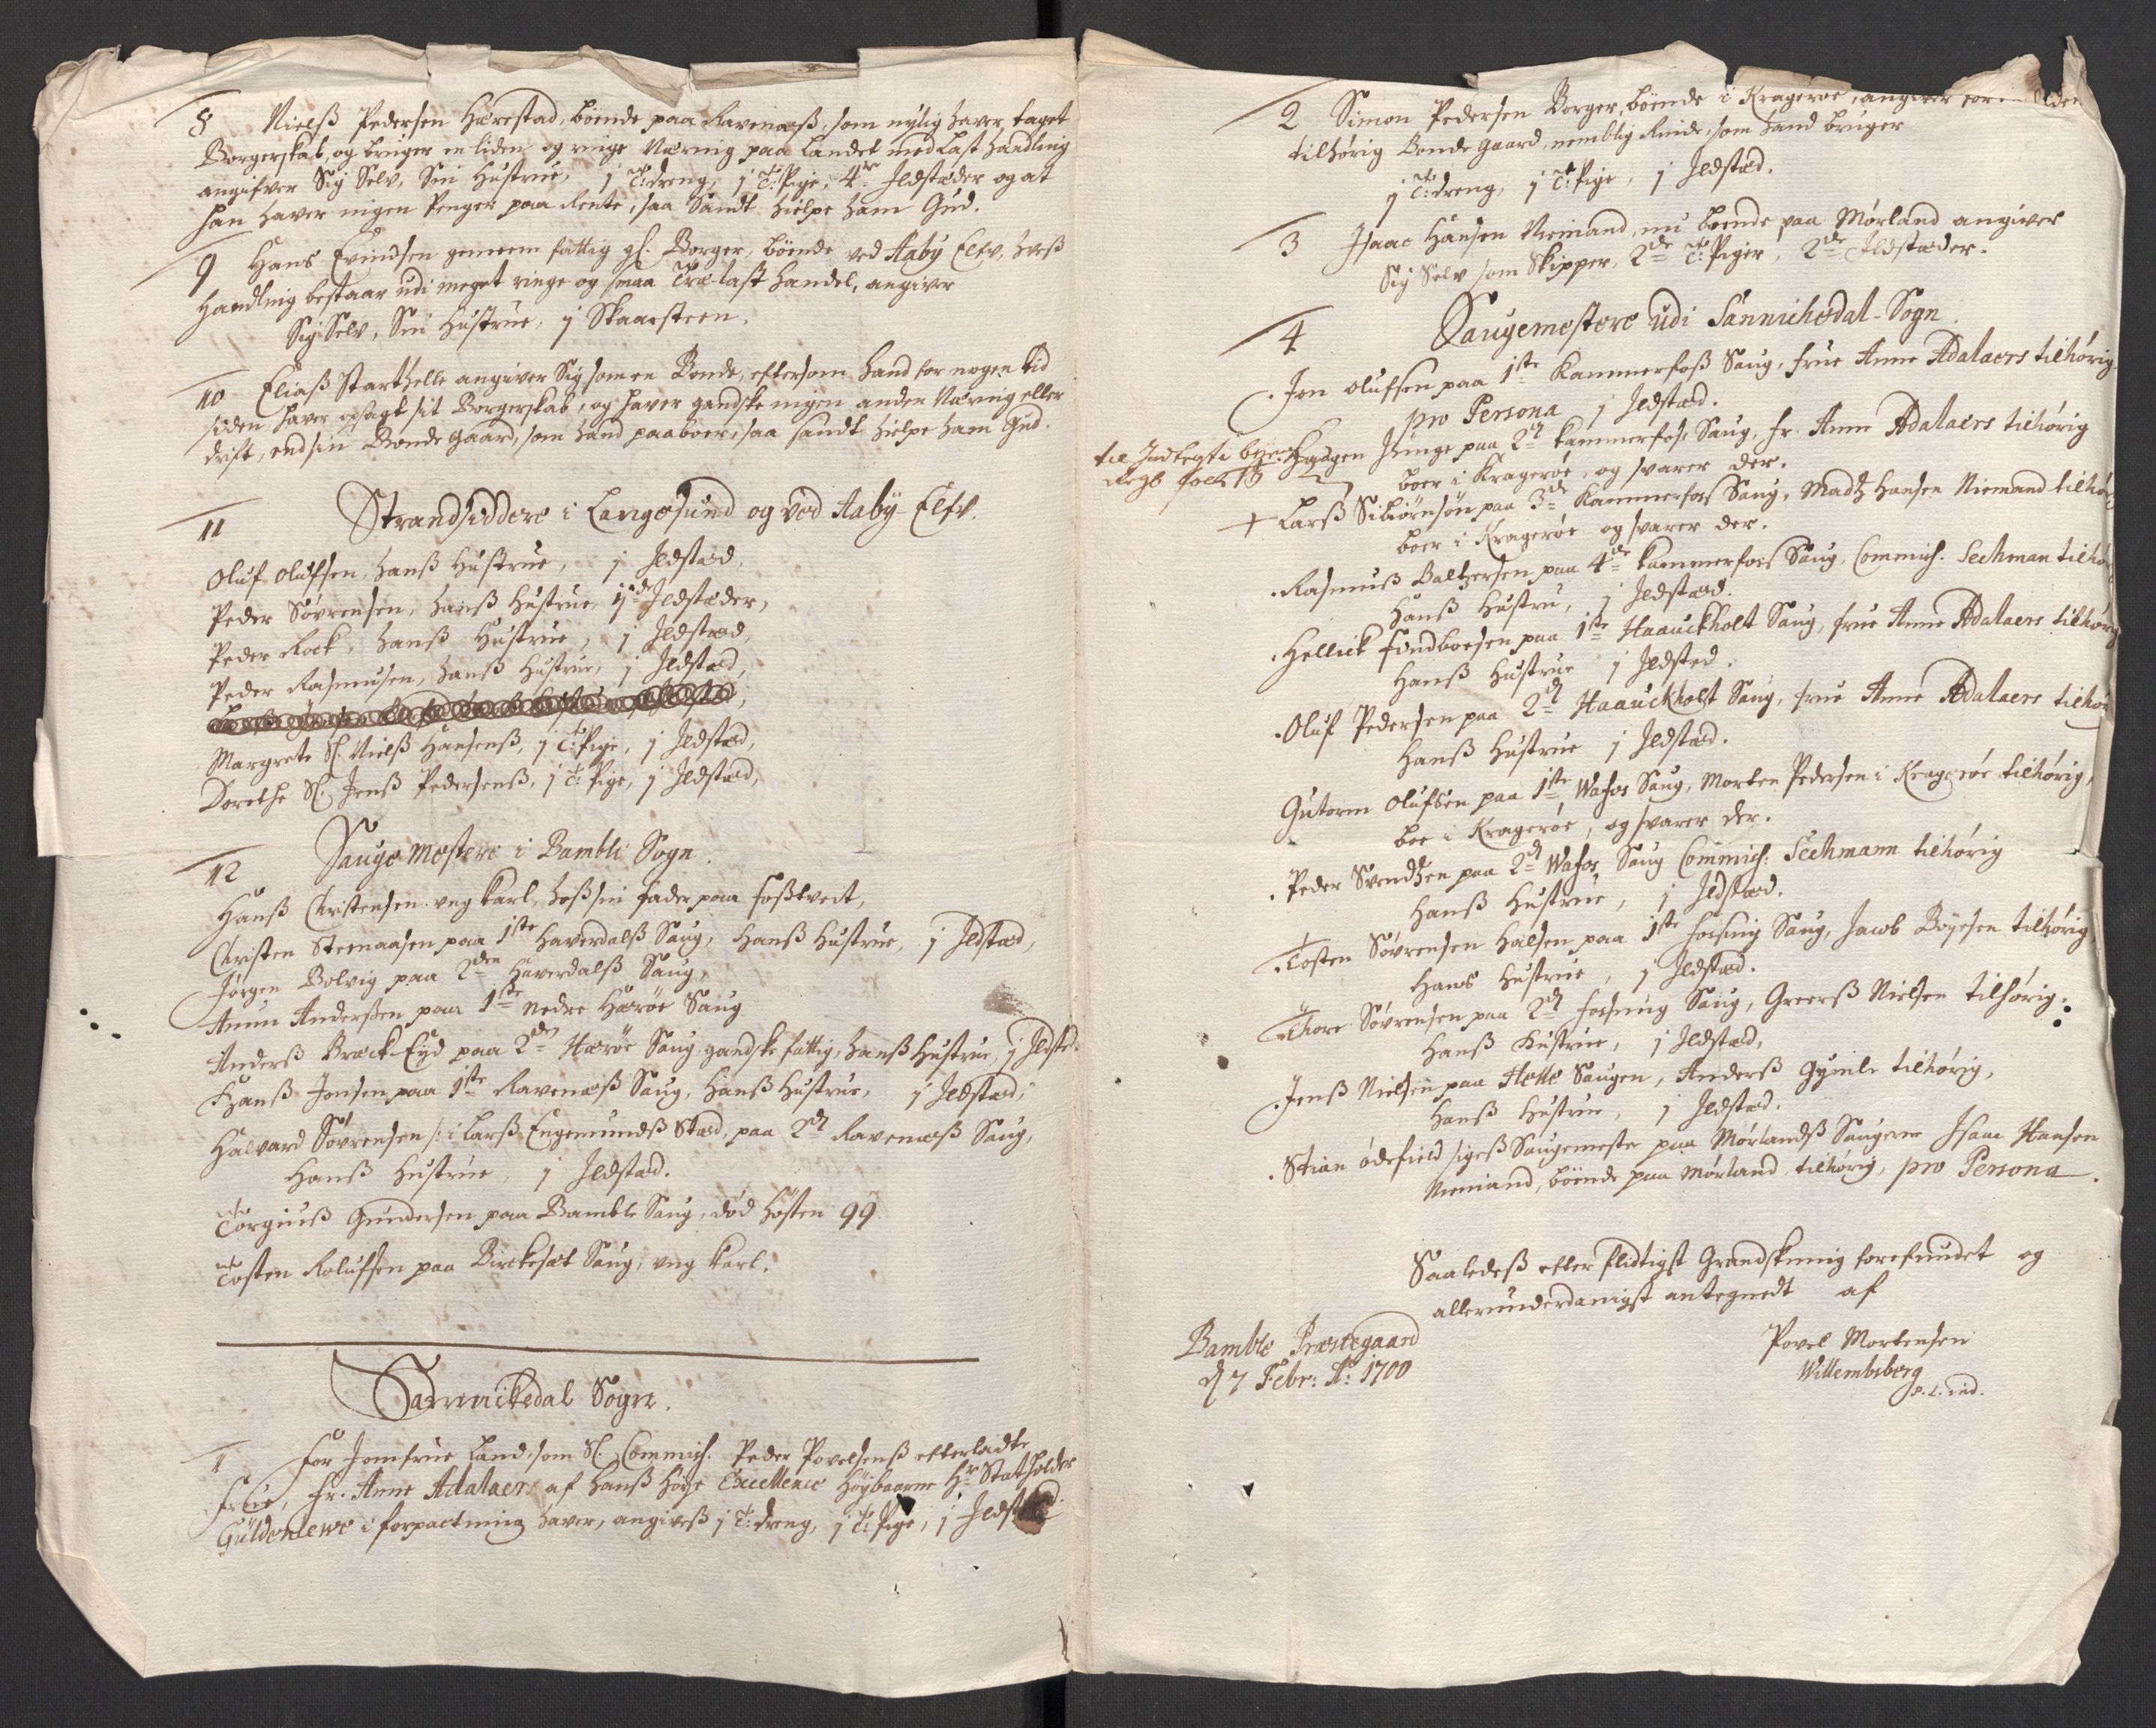 8 Nielß Pedersen Hærestad, böende paa Ravenæß, som nylig haver taget
Borgerskab, og bruger en liden og ringe Næring paa Landet med Last handling
angifver Sig Selv, Sin Hustrue, 1 T: dreng, 1 T: Pige, 4re Ildstæder og at
han haver ingen Penger paa Rente, saa Sandt hielpe ham Gud.
9 Hans Evindsen gemeen fattig gl. Borger, böende ved Aaby Elfv, hveß
handling bestaar udi meget ringe og smaa Træ-last handel, angiver
Sig Selv, Sin Hustrue, 1 Skaarsteen.
10 Eliaß Starthelle angiver Sig som en Bonde, eftersom hand for nogen tid
siden haver opsagt sit Borgerskab, og haver gandske ingen anden Næring eller
drift, end sin Bonde gaard, som hand paaboer, saa sandt hielpe ham Gud.
11 Strandsiddere i Langesund og ved Aaby-Elfv.
Oluf Olufsen, hanß Hustrue, 1 Ildstæd,
Peder Sövrensen, hanß Hustrue, ij de Ildstæder,
Peder Rock, hanß Hustrue, 1 Ildstæd,
Peder Rasmusen, hanß Hustrue, 1 Ildstæd,
Margrete Sl. Nielß Hansenß, 1 T: Pige, 1 Ildstæd,
Dorethe Sl. Jenß Pedersenß, 1 T: Pige, 1 Ildstæd,
12 Sauge Mestere i Bamble Sogn.
Hanß Christensen ung karl, hoß sin fader paa Foßtvedt,
Christen Steenaasen paa 1ste Haverdalß Saug, Hanß Hustrue, 1 Ildstæd,
Jörgen Bolvig paa 2den Haverdalß Saug,
Amun Andersen paa 1ste Nedre Hæröe Saug
Anderß Bræck-Eyd paa 2de Hæröe Saug, gandske fattig, hanß Hustrue, 1 Ildsted.
Hanß Jensen paa 1ste Ravenæß Saug, Hanß Hustrue, 1 Ildstæd,
Halvard Sövrensen /: i Larß Engemundß Stæd, paa 2d Ravenæß Saug,
Hanß Hustrue, 1 Ildstæd.
Torgiuß Gundersen paa Bamble Saug, död hösten 99
Tosten Rolufsen paa Birckesæt Saug, ung karl.
Sannickedal Sogn.
1 For Jomfrue Land, som Sl. Commiss. Peder Povelsenß efterladte
Frue, Fr. Anne Adalaers af Hanß höye Excellence Höybaarne Hr. Statholder
Güldenlewe i forpactning haver, angiveß 1 T: dreng, 1 T: Pige, 1 Ildstæd
2 Simon Pedersen Borger, böende i Krageröe, angiver for
tilhörig Bonde gaard, nemblig Rinde, som hand bruger
1 T: dreng, 1 T: Pige, 1 Ildstæd.
3 Isaac Hansen Niemand, nu böende paa Mörland angiver
Sig Selv som Skipper, 2de T: Piger, 2de Ildstæder.
4 Saugemestere udi Sannichedal-Sogn.
Jon Olufsen paa 1ste Kammerfoß Saug, Frue Anne Adalaers tilhörig.
pro Persona 1 Ildstæd.
Haagen Junge paa 2d Kammerfoß Saug, Fr. Anne Adalaers tilhörig
boer i Krageröe, og svarer der.
Larß Sibiörnsön paa 3de Kammerfoss Saug, Madtz Hansen Niemand tilhör
boer i Krageröe og svarer der.
Rasmuß Baltzersen paa 4de Kammerfoss Saug, Commiss. Sechman tilhör
Hanß Hustru, 1 Ildstæd.
Hellick Findboesen paa 1ste Haauckholt Saug, frue Anne Adalaers tilhörig
Hanß Hustrue 1 Ildsted.
Oluf Pedersen paa 2d Haauckholt Saug, frue Anne Adalaers tilhör
Hanß Hustrue 1 Ildstæd.
Gutorm Olufsen paa 1ste Wafos Saug, Morten Pedersen i Krageröe tilhörig,
boe i Krageröe, og svarer der.
Peder Svendtzen paa 2d Wafos Saug Commiss: Sechmann tilhörig
Hanß Hustrue, 1 Ildstæd.
Tosten Sövrensen Halsen paa 1ste Fossing Saug, Jacob Böyesen tilhörig,
Hans Hustrue, 1 Ildstæd.
Thore Sövrensen paa 2d Fossing Saug, Greerß Nielsen tilhörig.
Hanß Hustrue, 1 Ildstæd,
Jenß Nielsen paa Helle Saugen, Anderß Gyinle tilhörig,
Hanß Hustrue, 1 Ildstæd.
Stian ödefield sigeß Saugemester paa Mörlandß Saugene Isaac Hansen
Niemand, böende paa Mörland tilhörig, pro Persona.
Saaledeß efter flidtigst Grandskning forefundet og
allerunderdanigst antegnedt af
Bamble Præstegaard
d 7 Febr: A: 1700
Povel Mortensen
Willembsberg